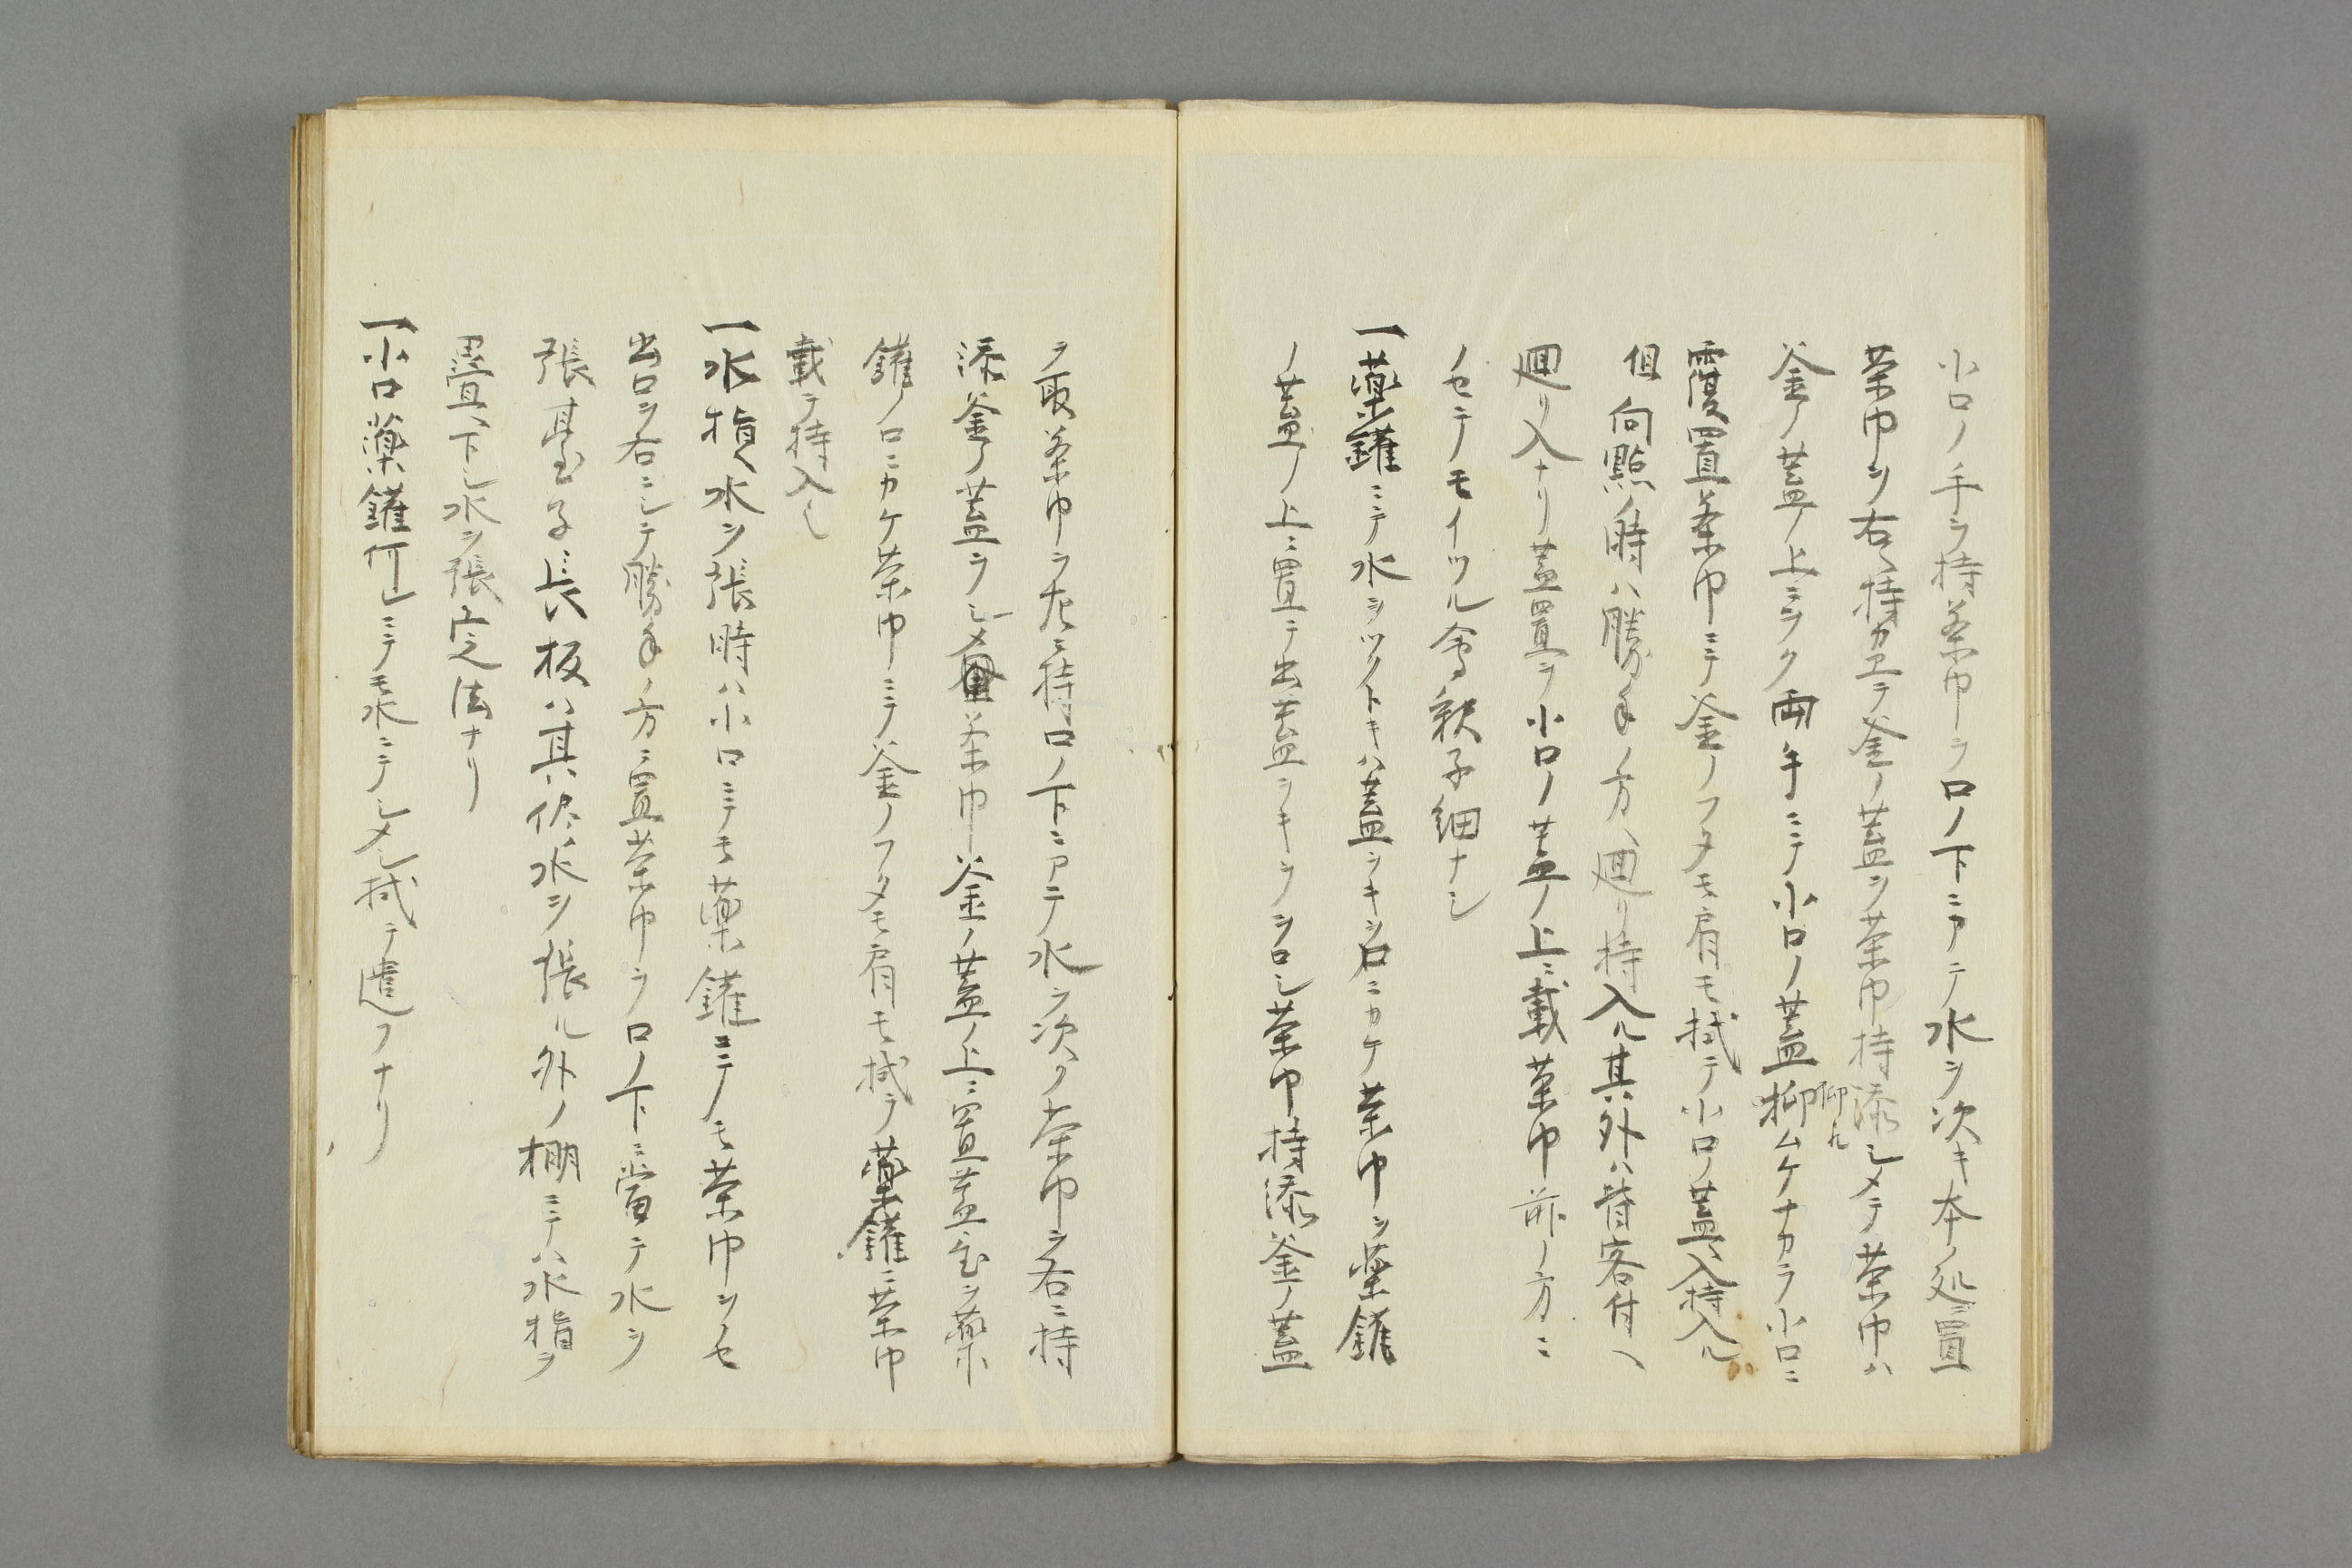 小口ノ手ヲ持茶巾ヲ口ノ下ニアテ水ヲ次キ本ノ処ニ置
茶巾ヲ右ヘ持カエテ釜ノ蓋ヲ茶巾持添シメテ茶巾ハ
釜ノ蓋ノ上ニヲク両手ニテ小口ノ蓋抑ムケナカラ小口ニ
仰カ
覆置茶巾ニテ釜ノフタモ肩モ拭テ小口ノ蓋ヘ入持入ル
但向點ノ時ハ勝手ノ方ヘ廻リ持入ル其外ハ皆客付ヘ
廻リ入ナリ蓋置ヲ小口ノ蓋ノ上ニ載茶巾前ノ方ニ
ノセテモイツル會釈子細ナシ
一薬鑵ニテ水ヲツクトキハ蓋ヲキヲ口ニカケ茶巾ヲ薬鑵
ノ蓋ノ上ニ置テ出蓋ヲキヲヲロシ茶巾持添釜ノ蓋
ヲ取茶巾ヲ左ニ持口ノ下ニアテ水ヲ次ク茶巾ヲ右ニ持
添釜ノ蓋ヲシメ茶巾釜ノ蓋ノ上ニ置蓋置ヲ薬
鑵ノ口ニカケ茶巾ニテ釜ノフタモ肩モ拭テ薬鑵ニ茶巾
載テ持入シ
一水指ヘ水ヲ張時ハ小口ニテモ薬鑵ニテモ茶巾ヲノセ
出口ヲ右ニシテ勝手ノ方ニ置茶巾ヲ口ノ下ニ當テ水ヲ
張臺子長板ハ其侭水ヲ張ル外ノ棚ニテハ水指ヲ
畳ヘ下シ水ヲ張定法ナリ
一小口薬鑵何レニテモ水ニテシメシ拭テ遣フナリ